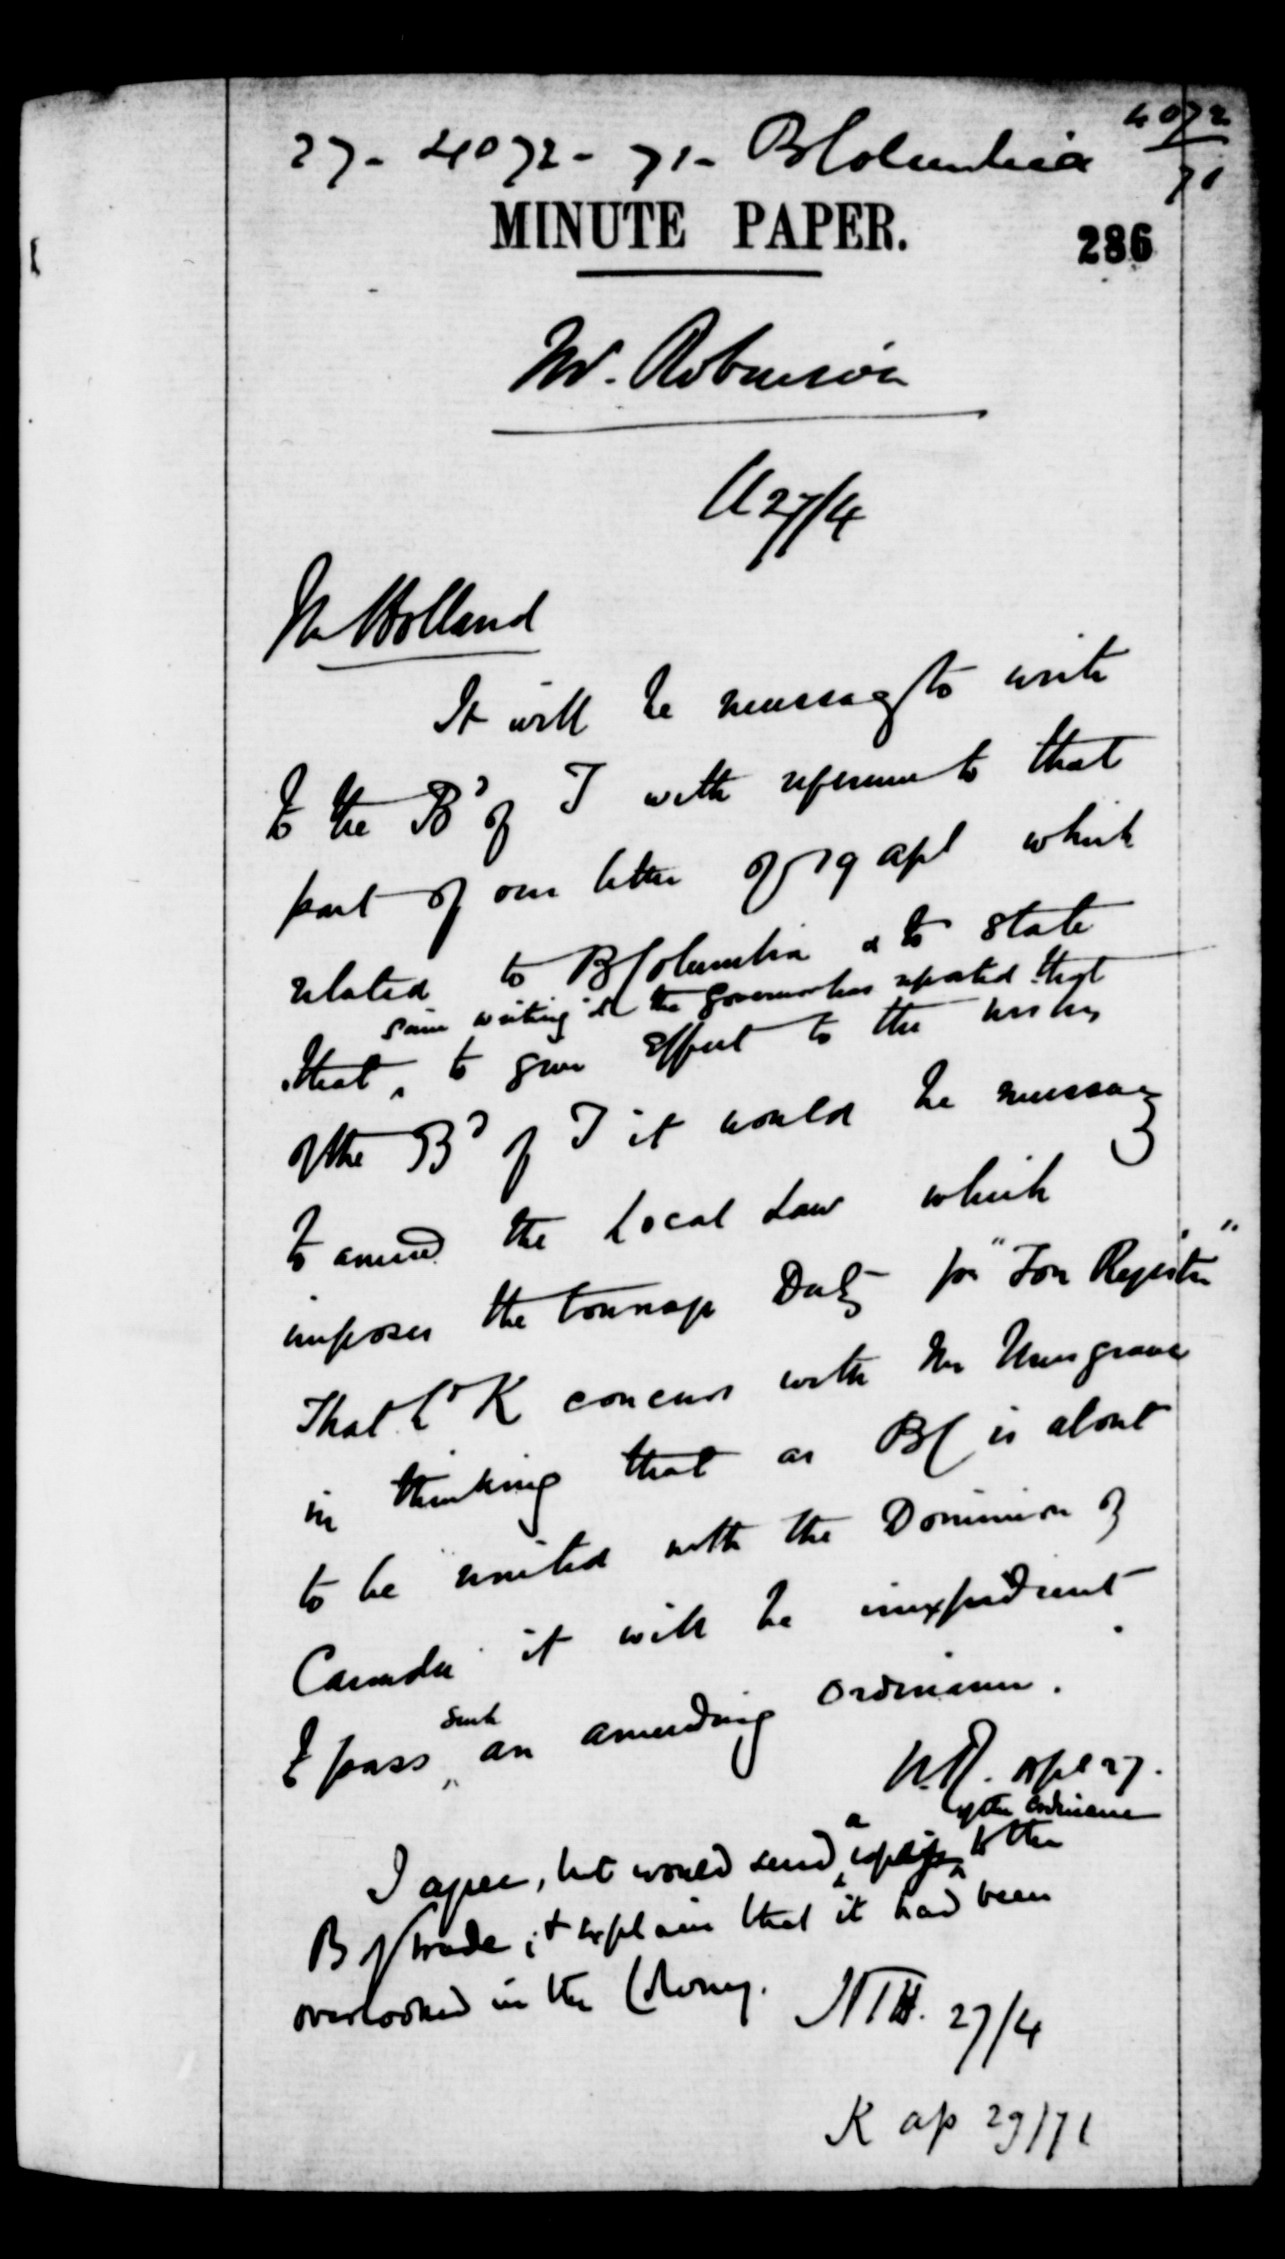 27 - 4072 - 71 - BColumbia
4072
71
MINUTE PAPER.
286
Mr. Robinson
27/4
Mr Holland
It will be necessary to write
to the Bd of T with reference to that
part of our letter of 19 apl which
related to BColumbia & to state
since writing it the Governor has reported that
that ^ to give effect to the wishes
of the Bd of T it would be necessary
to amend the Local Law which
imposes the tonnage Duty for "Ton Register"
That Ld K concurs with Mr Musgrave
in thinking that as BC is about
to be united with the Dominion of
Canada it will be inexpedient
such
to pass ^ an amending ordinance.
WR. Apl 27.
of the ordinance
I agree, but would send ^ a copy ^ to the
B of Trade, & explain that it had been
overlooked in the Colony.
HTH. 27/4
K ap 29/71